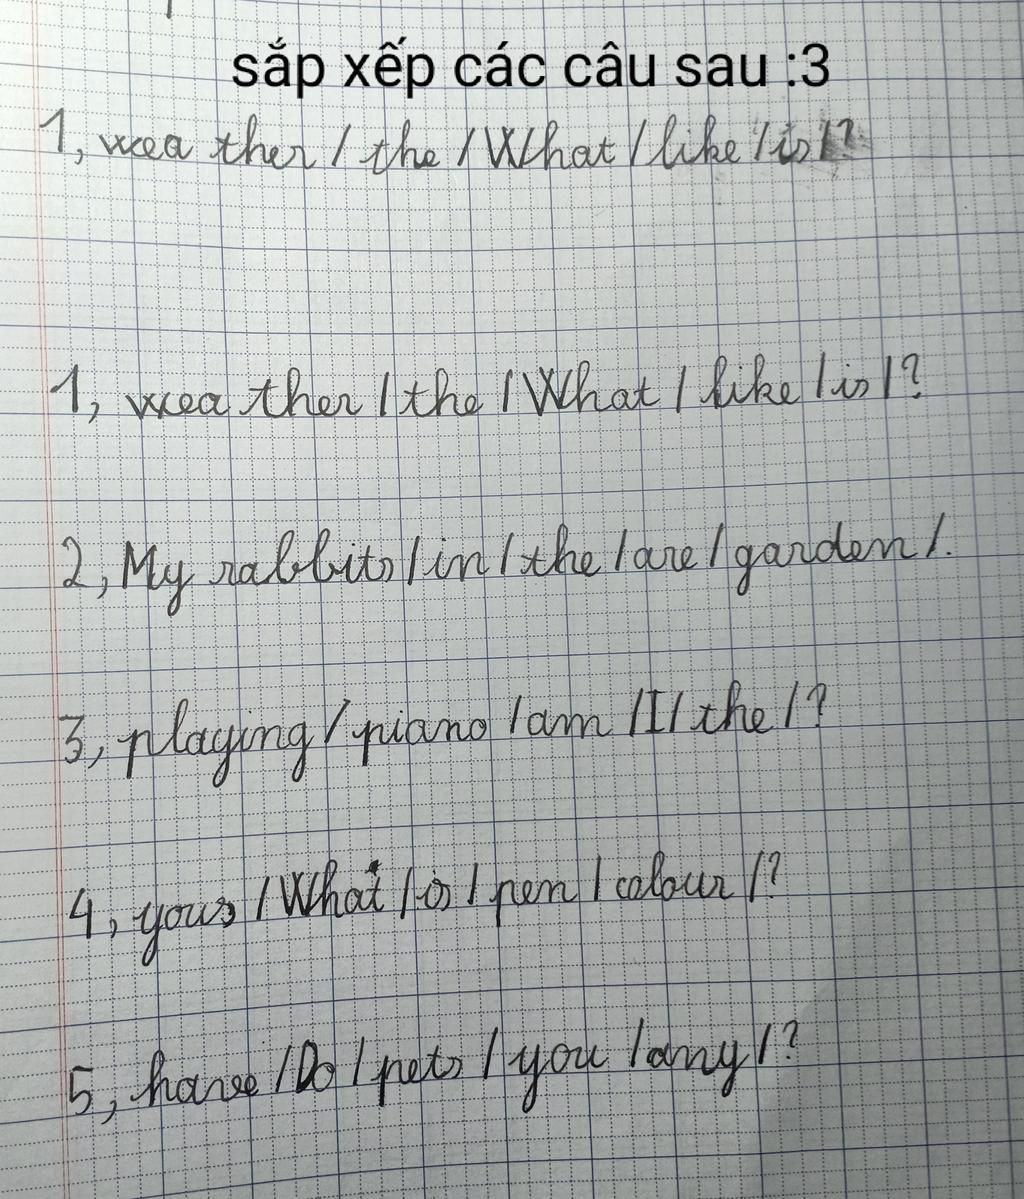 sắp xếp các câu sau :3
1, wea ther / the / What / like / is / ?
1, wea ther / the / What / like / is / ?
2, My rabbits / in / the / are / garden / .
3, playing / piano / am / I / the / ?
4, your / What / is / pen / colour / ?
5, have / Do / pets / you / any / ?